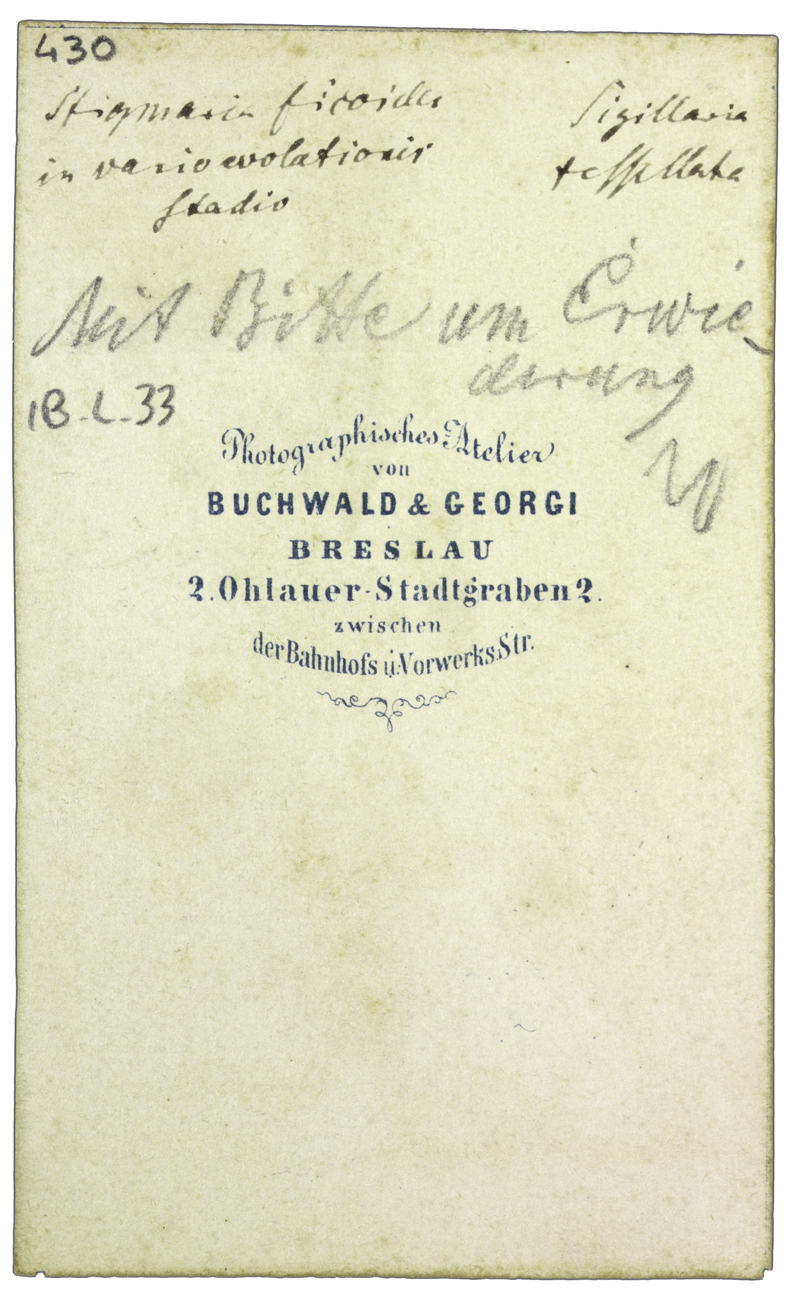 430
Stigmaria ficoides
in vario evolationis
stadio
Sigillaria
tessellata
Mit Bitte um Erwie-
derung
IB-L-33
Photographisches Atelier
von
BUCHWALD & GEORGI
BRESLAU
2. Ohlauer-Stadtgraben 2.
zwischen
der Bahnhofs u. Vorwerks Str.